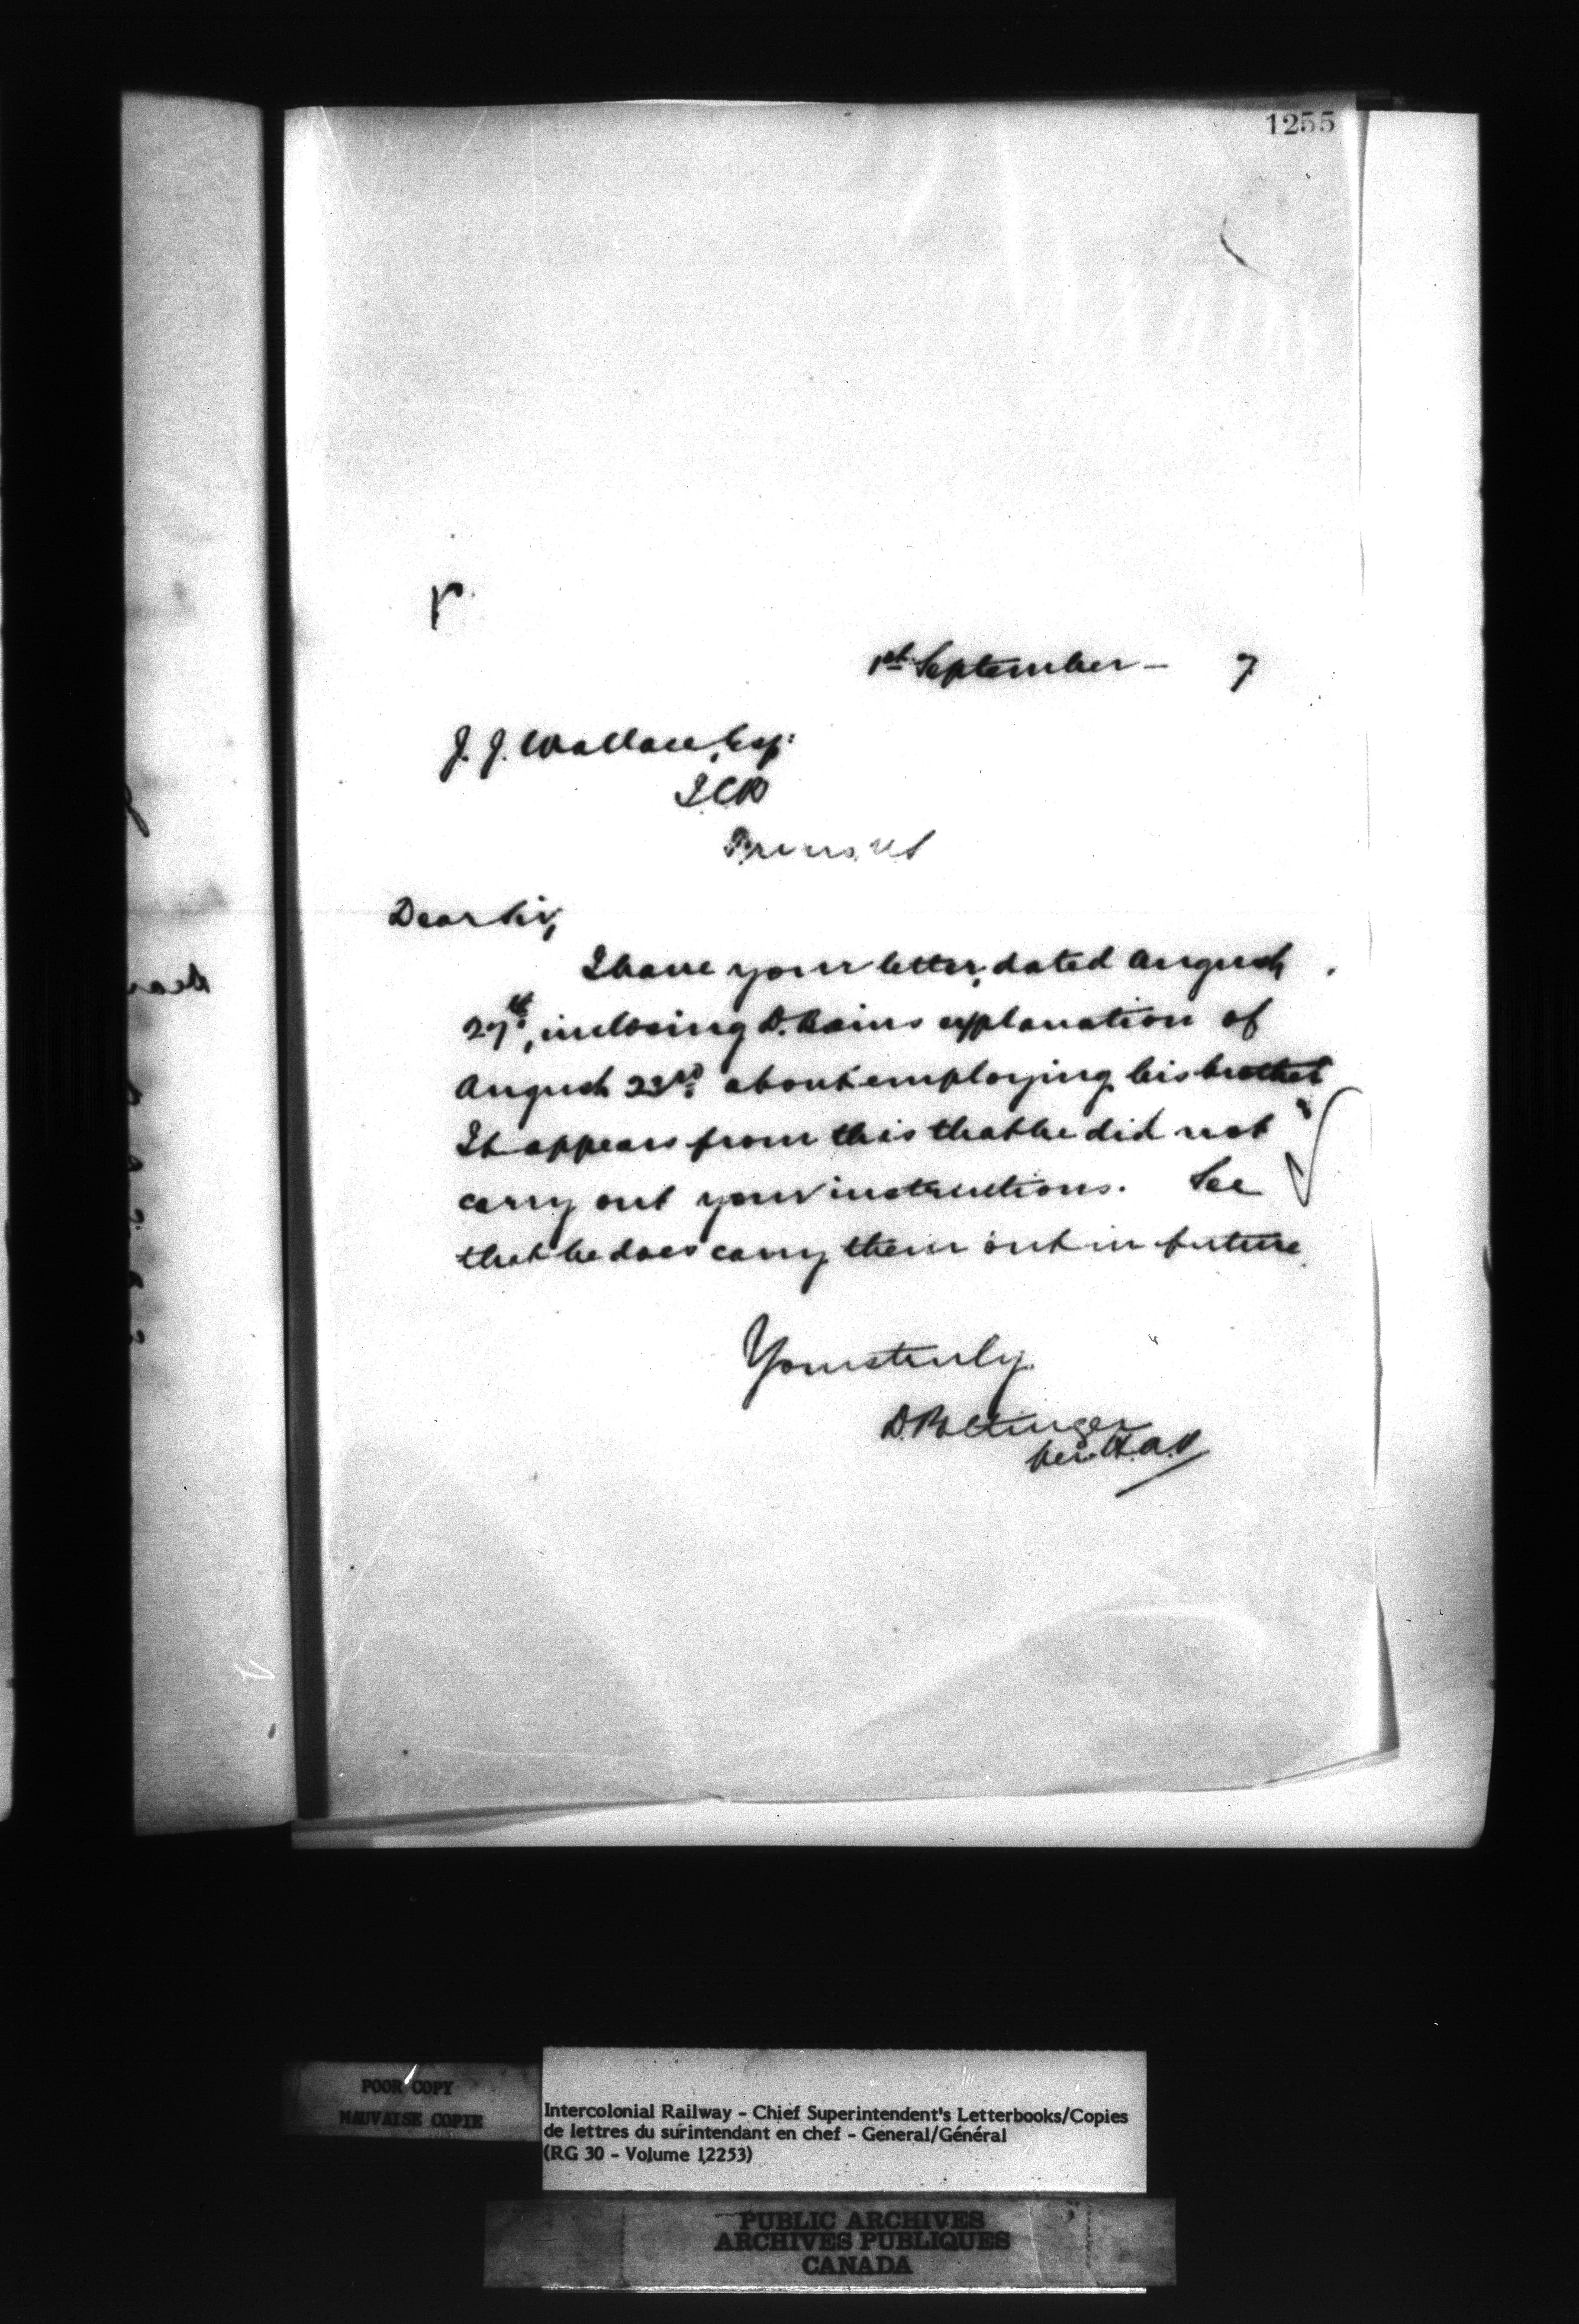 1255
r
1st September – 7
J. J. Wallace, Esq:
I.C.R
Dear Sir,
I have your letter, dated August
27th, inclosing D. explanation of
August 23rd about employing his brother
It appears from this that he did not
carry out your instructions. See
that he does carry them out in future.
Yours truly.
D. Pottinger
Dear
POOR COPY
MAUVAISE COPIE
Intercolonial Railway - Chief Superintendent's Letterbooks/Copies
de lettres du surintendant en chef - General/Général
(RG 30 - Volume 12253)
PUBLIC ARCHIVES
ARCHIVES PUBLIQUES
CANADA